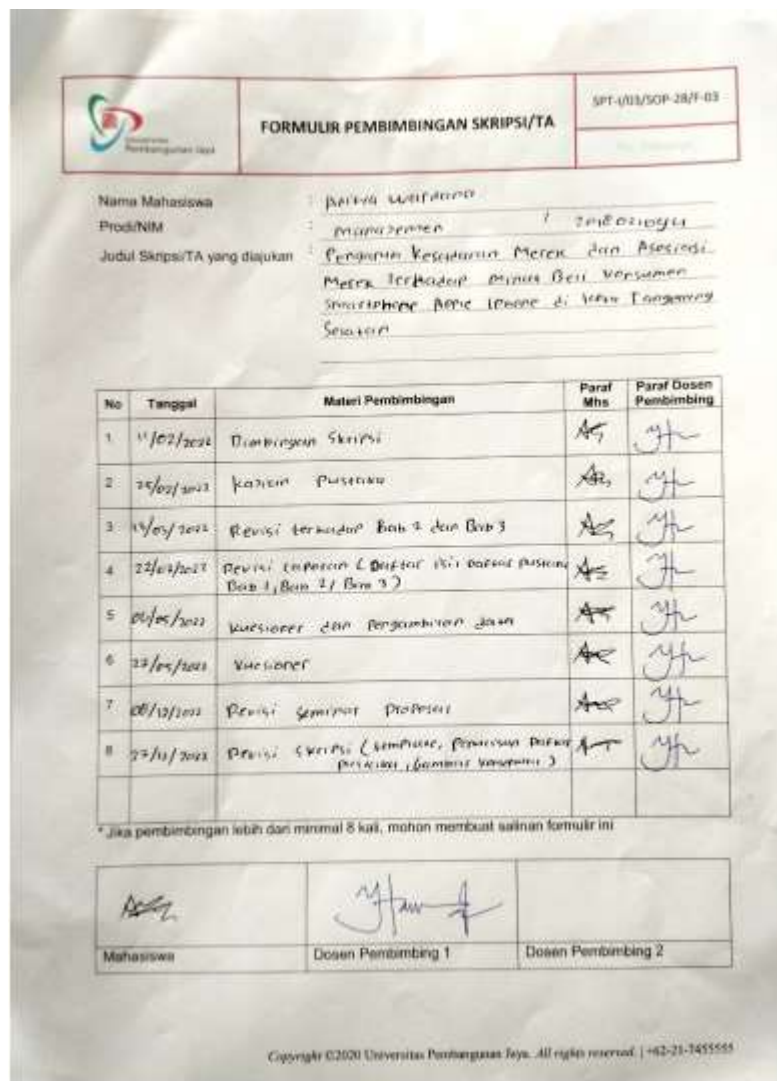 SPT-I/03/SOP-28/F-03
FORMULIR PEMBIMBINGAN SKRIPSI/TA
Universitas
Pembangunan Jaya
Nama Mahasiswa :
Prodi/NIM : Manajemen /
Judul Skripsi/TA yang diajukan : Pengaruh Kesadaran Merek dan Asosiasi
Merek Terhadap Minat Beli Konsumen
Smartphone Apple Iphone di Kota Tangerang
Selatan
No Tanggal Materi Pembimbingan Paraf Mhs Paraf Dosen Pembimbing
1 11/02/2022 Bimbingan Skripsi
2 25/02/2022 Kajian Pustaka
3 Revisi terhadap Bab 2 dan Bab 3
4 Revisi Laporan ( Daftar isi, Daftar Pustaka
Bab 1, Bab 2, Bab 3 )
5 Kuesioner dan Pengambilan data
6 27/05/2022 Kuesioner
7 08/12/2022 Revisi Seminar Proposal
8 Revisi Skripsi ( Penulisan Daftar
Pustaka, Gambar )
* Jika pembimbingan lebih dari minimal 8 kali, mohon membuat salinan formulir ini
Mahasiswa Dosen Pembimbing 1 Dosen Pembimbing 2
Copyright ©2020 Universitas Pembangunan Jaya. All rights reserved. | +62-21-7455555